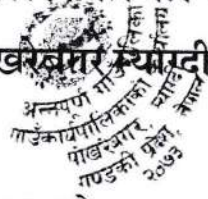 खरबगर म्याग्दी
अन्नपूर्ण गाउँपालिका
गाउँकार्यपालिकाको कार्यालय
पोखरेबगर, म्याग्दी
गण्डकी प्रदेश, नेपाल
२०७३